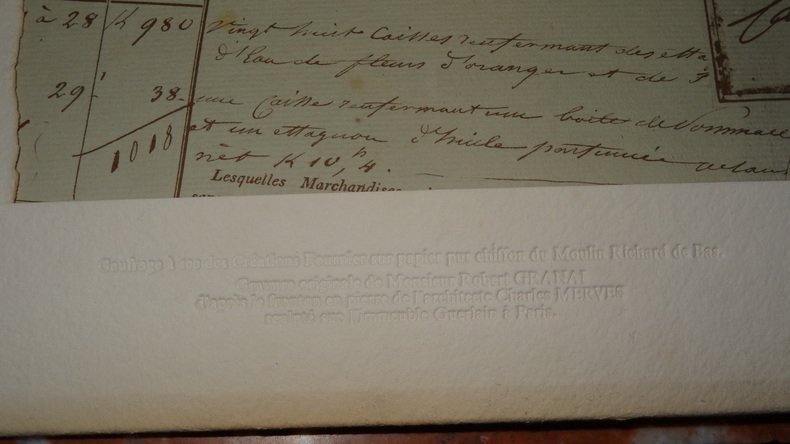 à 28 K 980 Vingt huit Caisses renfermant des esta
d'Eau de fleurs d'oranger et de
29 38 une Caisse renfermant une boite de Pommade
et un estagnon d'huile parfumée
1018
nèt K 10, 4.
Lesquelles Marchandises
Gaufrage à sec des Créations Fournier sur papier pur chiffon du Moulin Richard de Bas.
Gravure originale de Monsieur Robert
d'après le fronton en pierre de l'architecte Charles MEWES
sculpté sur l'immeuble Guerlain à Paris.